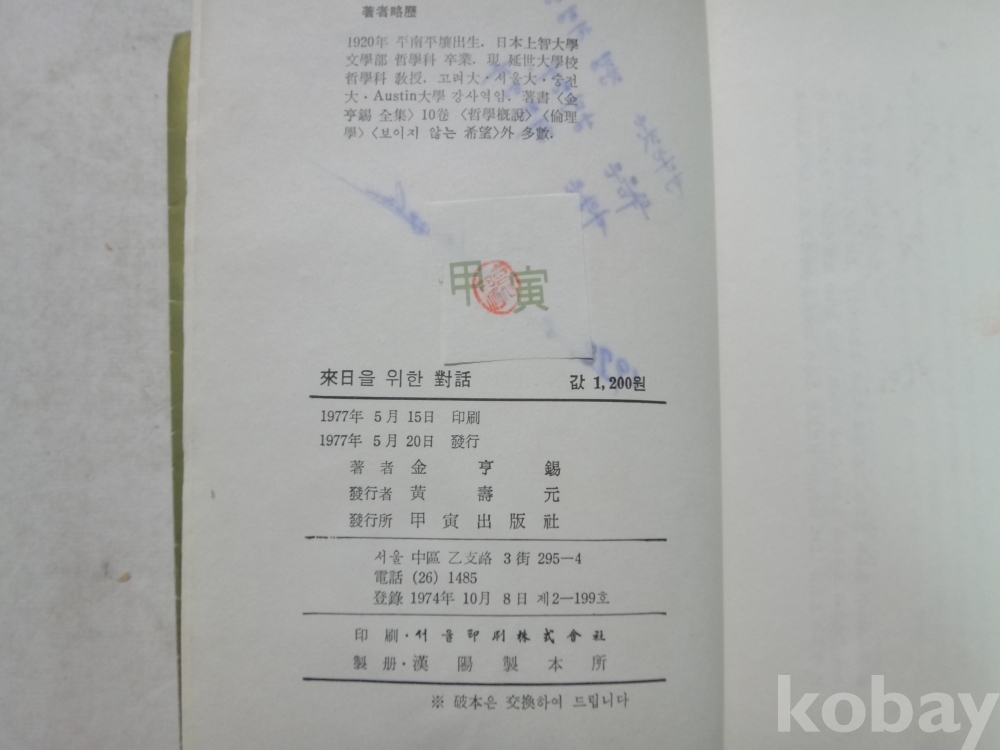 著者略歷
1920年 平南平壤出生. 日本上智大學
文學部 哲學科 卒業. 現 延世大學校
哲學科 敎授. 고려大·서울大·숭전
大·Austin大學 강사역임. 著書〈金
亨錫 全集〉10卷 〈哲學槪說〉〈倫理
學〉〈보이지 않는 希望〉外 多數.
甲寅
來日을 위한 對話 값 1,200원
1977年 5月 15日 印刷
1977年 5月 20日 發行
著者 金亨錫
發行者 黃壽元
發行所 甲寅出版社
서울 中區 乙支路 3街 295—4
電話 (26) 1485
登錄 1974年 10月 8日 제2—199호
印刷·서울印刷株式會社
製册·漢陽製本所
※ 破本은 交換하여 드립니다
kobay